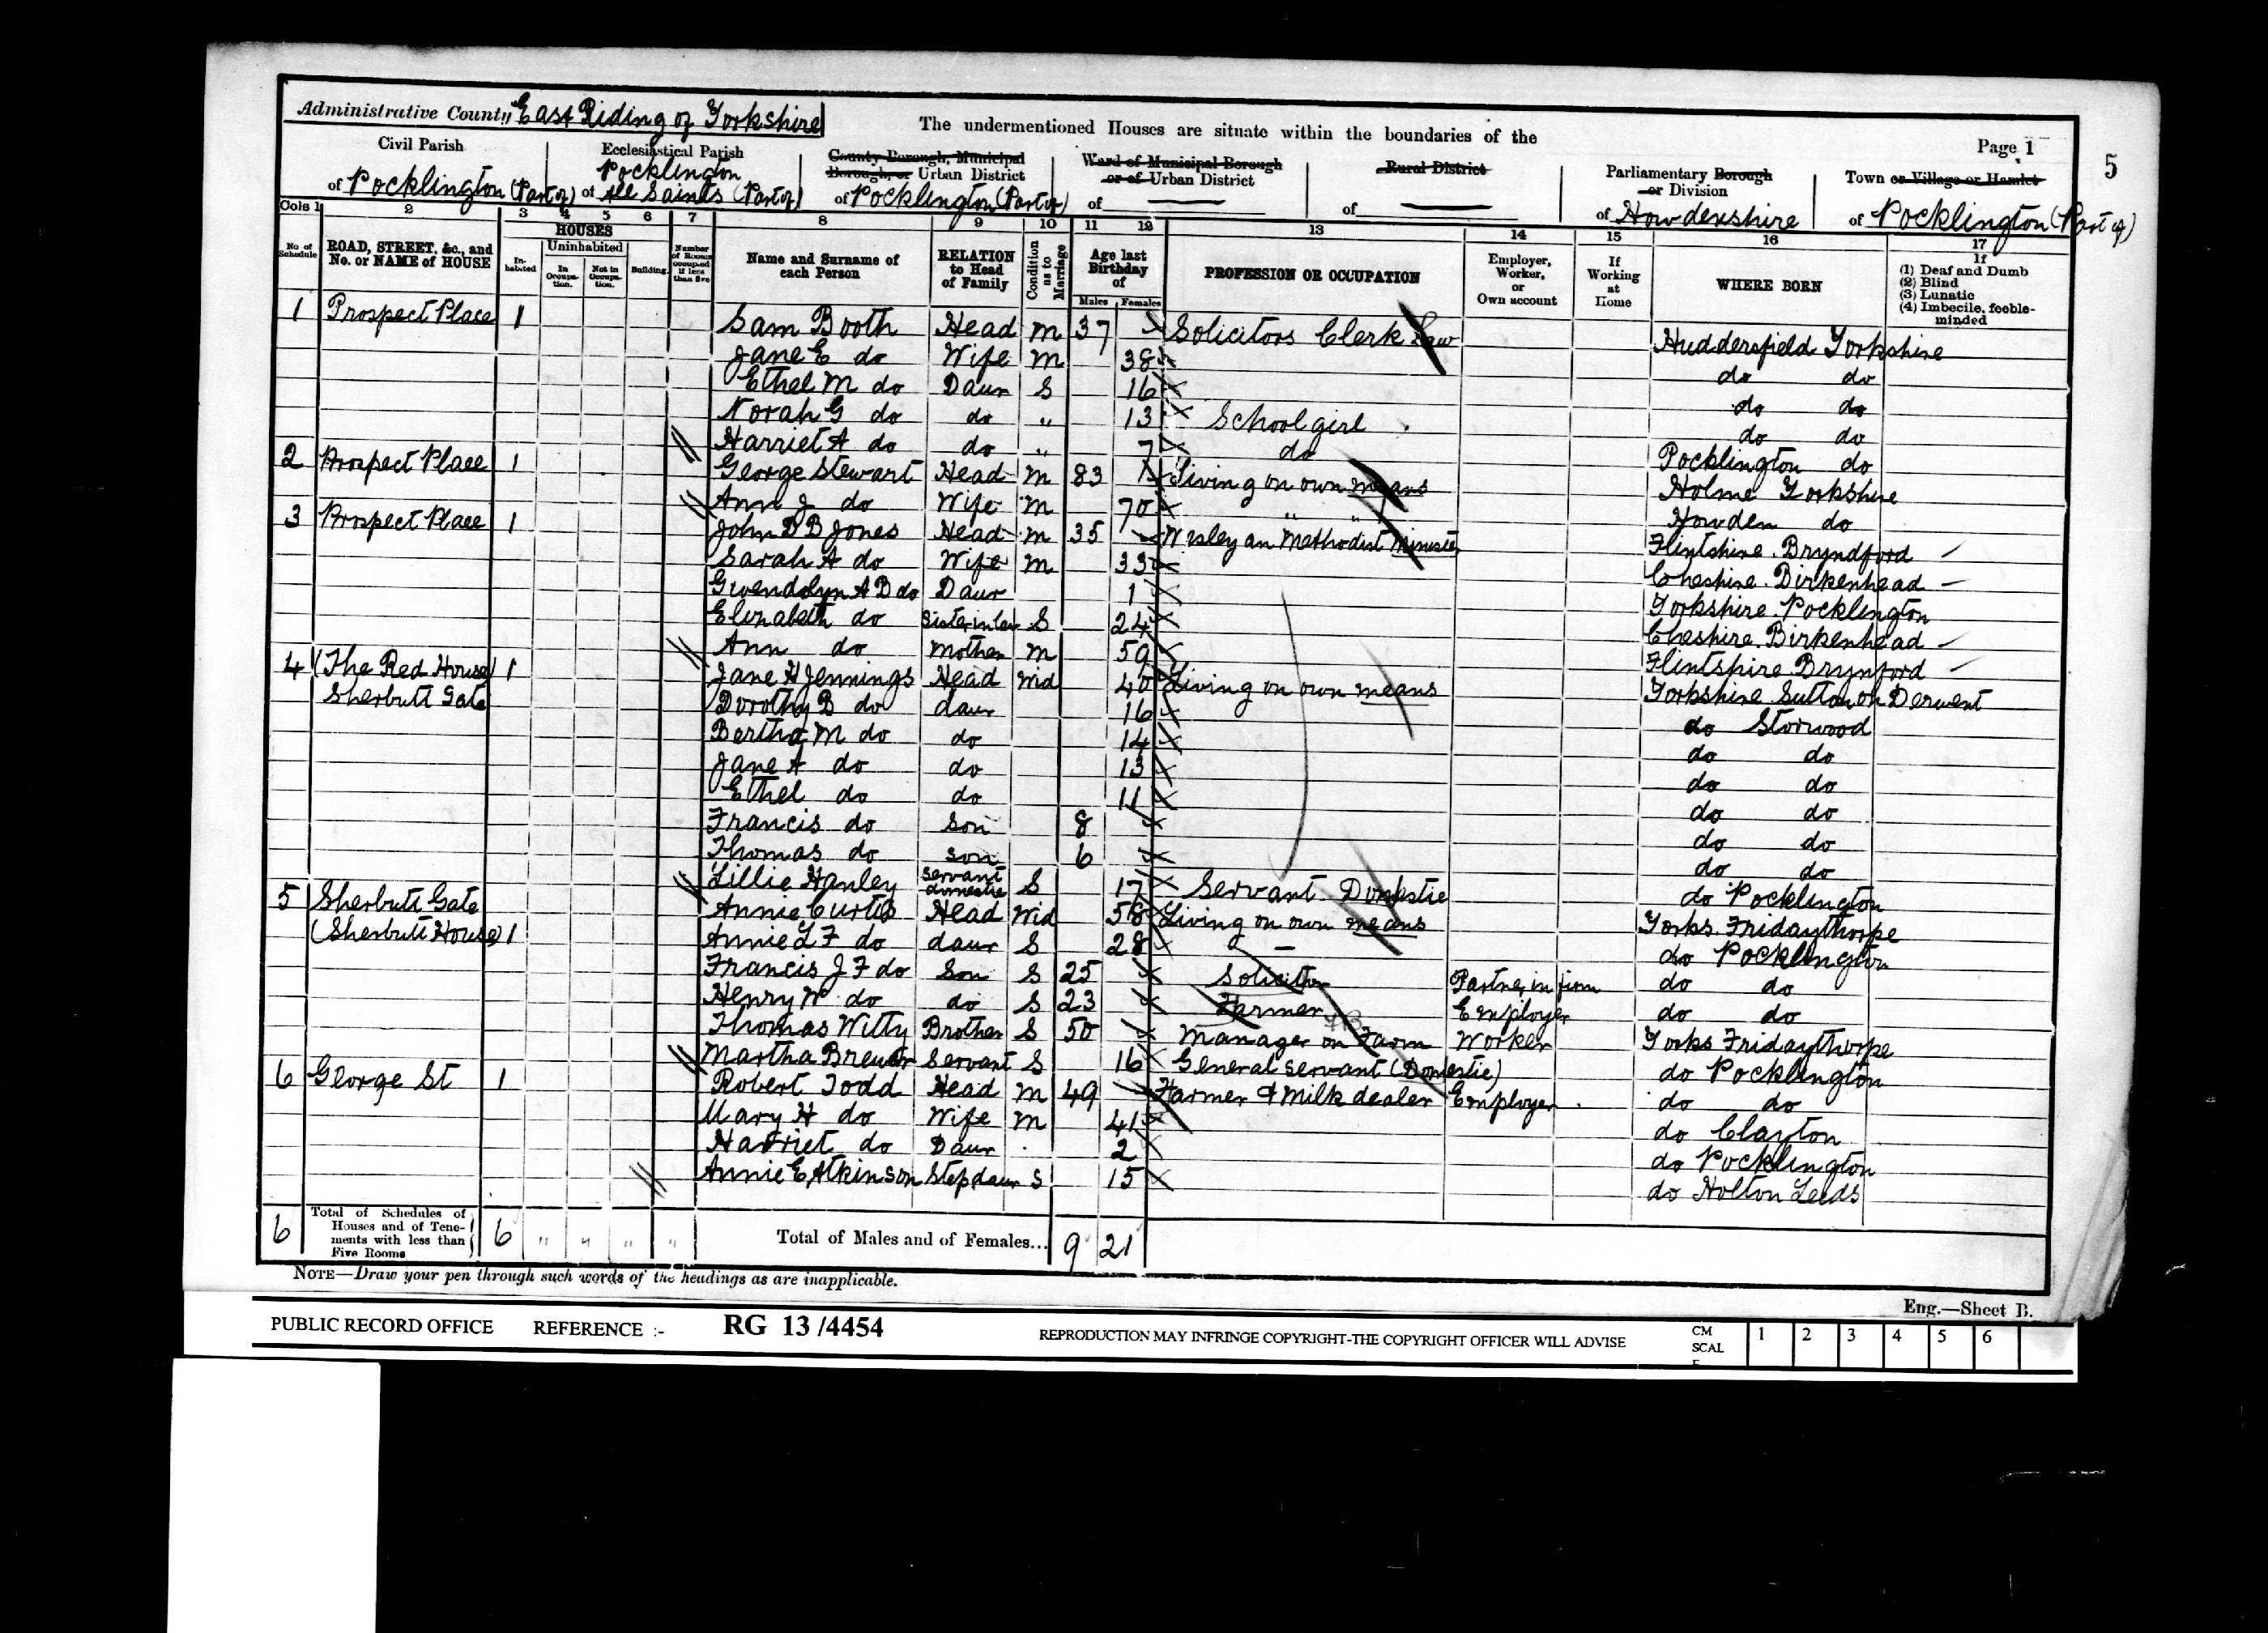 Administrative County East Riding of Yorkshire
The undermentioned Houses are situate within the boundaries of the
Page 1
5
Civil Parish of Pocklington (Part of)
Ecclesiastical Parish of Pocklington All Saints (Part of)
County Borough, Municipal Borough, or Urban District of Pocklington (Part of)
Ward of Municipal Borough or of Urban District of —
Rural District of —
Parliamentary Borough or Division of Howdenshire
Town or Village or Hamlet of Pocklington (Part of)
Cols 1 2 3 4 5 6 7 8 9 10 11 12 13 14 15 16 17
No of Schedule
ROAD, STREET, &c., and No. or NAME of HOUSE
HOUSES
Inhabited
Uninhabited
In Occupation.
Not in Occupation.
Building.
Number of Rooms occupied if less than five
Name and Surname of each Person
RELATION to Head of Family
Condition as to Marriage
Age last Birthday of
Males Females
PROFESSION OR OCCUPATION
Employer, Worker, or Own account
If Working at Home
WHERE BORN
If (1) Deaf and Dumb (2) Blind (3) Lunatic (4) Imbecile, feeble-minded
1 Prospect Place 1 Sam Booth Head M 37 Solicitors Clerk Law Huddersfield Yorkshire
Jane E do Wife M 38 do do
Ethel M do Daur S 16 do do
Norah G do do " 13 School girl do do
Harriet A do do " 7 do Pocklington do
2 Prospect Place 1 George Stewart Head M 83 Living on own means Holme Yorkshire
Ann J do Wife M 70 " " Howden do
3 Prospect Place 1 John D B Jones Head M 35 Wesleyan Methodist Minister Flintshire. Bryndford
Sarah A do Wife M 33 Cheshire. Birkenhead
Gwendolyn A B do Daur 1 Yorkshire. Pocklington
Elizabeth do Sister in law S 24 Cheshire. Birkenhead
Ann do Mother M 59 Flintshire Brynford
4 (The Red House) 1 Jane H Jennings Head Wid 40 Living on own means Yorkshire Sutton on Derwent
Sherbutt Gate Dorothy B do daur 16 do Storwood
Bertha M do do 14 do do
Jane A do do 13 do do
Ethel do do 11 do do
Francis do Son 8 do do
Thomas do son 6 do do
Lillie Hanley Servant domestic S 17 Servant Domestic do Pocklington
5 Sherbutt Gate Annie Curtis Head Wid 58 Living on own means Yorks. Fridaythorpe
(Sherbutt House) 1 Annie L F do daur S 28 — do Pocklington
Francis J F do Son S 25 Solicitor Partner in firm do do
Henry W do do S 23 Farmer Employer do do
Thomas Witty Brother S 50 Manager on Farm Worker Yorks Fridaythorpe
Martha Brewer Servant S 16 General Servant (Domestic) do Pocklington
6 George St 1 Robert Todd Head M 49 Farmer & Milk dealer Employer do do
Mary H do Wife M 41 do Clayton
Harriet do Daur 2 do Pocklington
Annie E Atkinson Stepdaur S 15 do Holton Leeds
6 Total of Schedules of Houses and of Tenements with less than Five Rooms 6 " " " " Total of Males and of Females... 9 21
NOTE—Draw your pen through such words of the headings as are inapplicable.
Eng.—Sheet B.
PUBLIC RECORD OFFICE REFERENCE :- RG 13 /4454 REPRODUCTION MAY INFRINGE COPYRIGHT-THE COPYRIGHT OFFICER WILL ADVISE CM SCAL 1 2 3 4 5 6